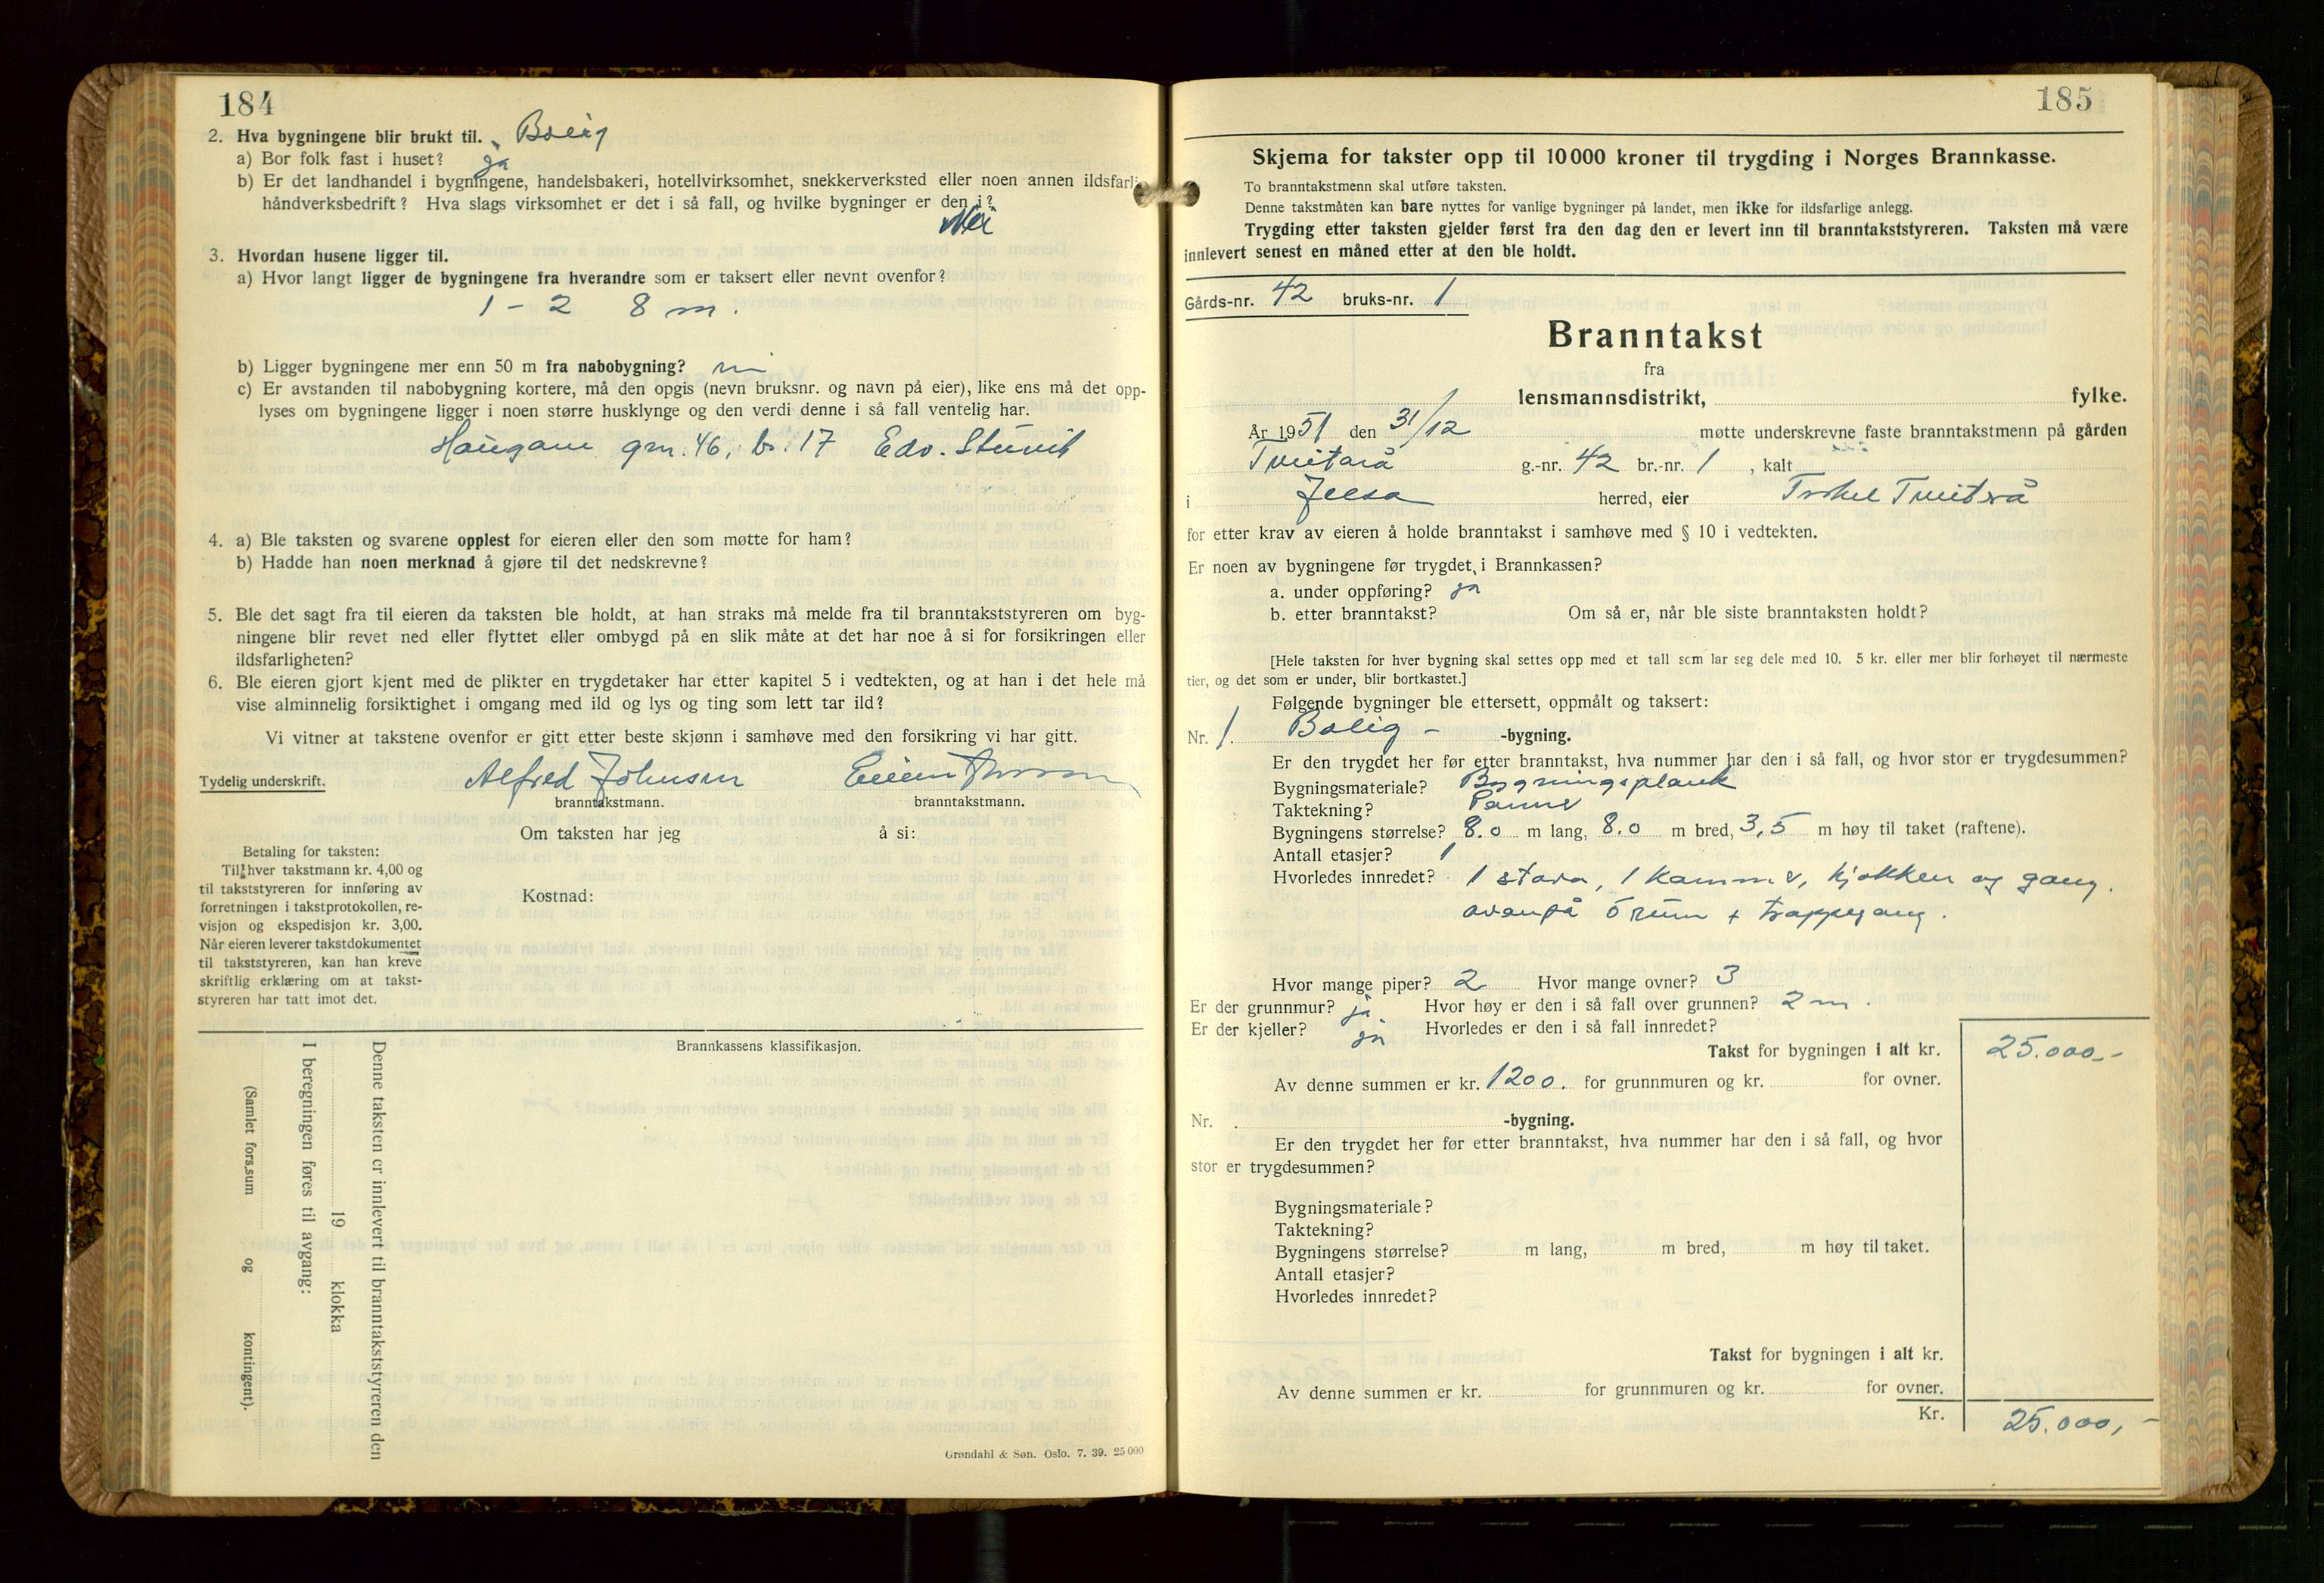 184
2. Hva bygningene blir brukt til. Bolig
a) Bor folk fast i huset? ja
b) Er det landhandel i bygningene, handelsbakeri, hotellvirksomhet, snekkerverksted eller noen annen ildsfarlig
håndverksbedrift? Hva slags virksomhet er det i så fall, og hvilke bygninger er den i?
Nei
3. Hvordan husene ligger til.
a) Hvor langt ligger de bygningene fra hverandre som er taksert eller nevnt ovenfor?
1 - 2 8 m.
b) Ligger bygningene mer enn 50 m fra nabobygning? nei
c) Er avstanden til nabobygning kortere, må den opgis (nevn bruksnr. og navn på eier), like ens må det opp-
lyses om bygningene ligger i noen større husklynge og den verdi denne i så fall ventelig har.
gnr. 46, br. 17 Edv.
4. a) Ble taksten og svarene opplest for eieren eller den som møtte for ham?
b) Hadde han noen merknad å gjøre til det nedskrevne?
5. Ble det sagt fra til eieren da taksten ble holdt, at han straks må melde fra til branntakststyreren om byg-
ningene blir revet ned eller flyttet eller ombygd på en slik måte at det har noe å si for forsikringen eller
ildsfarligheten?
6. Ble eieren gjort kjent med de plikter en trygdetaker har etter kapitel 5 i vedtekten, og at han i det hele må
vise alminnelig forsiktighet i omgang med ild og lys og ting som lett tar ild?
Vi vitner at takstene ovenfor er gitt etter beste skjønn i samhøve med den forsikring vi har gitt.
Tydelig underskrift. Alfred Johnsen
branntakstmann. branntakstmann.
Om taksten har jeg å si:
Betaling for taksten:
Til hver takstmann kr. 4,00 og
til takststyreren for innføring av
forretningen i takstprotokollen, re-
visjon og ekspedisjon kr. 3,00.
Når eieren leverer takstdokumentet
til takststyreren, kan han kreve
skriftlig erklæring om at takst-
styreren har tatt imot det.
Kostnad:
Brannkassens klassifikasjon.
Denne taksten er innlevert til branntakststyreren den
19 klokka
I beregningen føres til avgang:
(Samlet fors.sum og kontingent).
Grøndahl & Søn. Oslo. 7. 39. 25 000
185
Skjema for takster opp til 10 000 kroner til trygding i Norges Brannkasse.
To branntakstmenn skal utføre taksten.
Denne takstmåten kan bare nyttes for vanlige bygninger på landet, men ikke for ildsfarlige anlegg.
Trygding etter taksten gjelder først fra den dag den er levert inn til branntakststyreren. Taksten må være
innlevert senest en måned etter at den ble holdt.
Gårds-nr. 42 bruks-nr. 1
Branntakst
fra
lensmannsdistrikt, fylke.
År 1951 den 31/12 møtte underskrevne faste branntakstmenn på gården
Tveitarå g.-nr. 42 br.-nr. 1, kalt
i Jelsa herred, eier Torkel Tveitrå
for etter krav av eieren å holde branntakst i samhøve med § 10 i vedtekten.
Er noen av bygningene før trygdet i Brannkassen?
a. under oppføring? ja
b. etter branntakst? Om så er, når ble siste branntaksten holdt?
[Hele taksten for hver bygning skal settes opp med et tall som lar seg dele med 10. 5 kr. eller mer blir forhøyet til nærmeste
tier, og det som er under, blir bortkastet.]
Følgende bygninger ble ettersett, oppmålt og taksert:
Nr. 1. Bolig - -bygning.
Er den trygdet her før etter branntakst, hva nummer har den i så fall, og hvor stor er trygdesummen?
Bygningsmateriale? Bygningsplank
Taktekning? Panne
Bygningens størrelse? 8.0 m lang, 8.0 m bred, 3,5 m høy til taket (raftene).
Antall etasjer? 1
Hvorledes innredet? 1 stova, 1 kammer, kjøkken og gang.
ovenpå 5 rum + trappegang.
Hvor mange piper? 2 Hvor mange ovner? 3
Er der grunnmur? ja Hvor høy er den i så fall over grunnen? 2 m.
Er der kjeller? ja Hvorledes er den i så fall innredet?
Takst for bygningen i alt kr. 25.000,-
Av denne summen er kr. 1200. for grunnmuren og kr. for ovner.
Nr. . -bygning.
Er den trygdet her før etter branntakst, hva nummer har den i så fall, og hvor
stor er trygdesummen?
Bygningsmateriale?
Taktekning?
Bygningens størrelse? m lang, m bred, m høy til taket.
Antall etasjer?
Hvorledes innredet?
Takst for bygningen i alt kr.
Av denne summen er kr. for grunnmuren og kr. for ovner.
Kr. 25.000,-